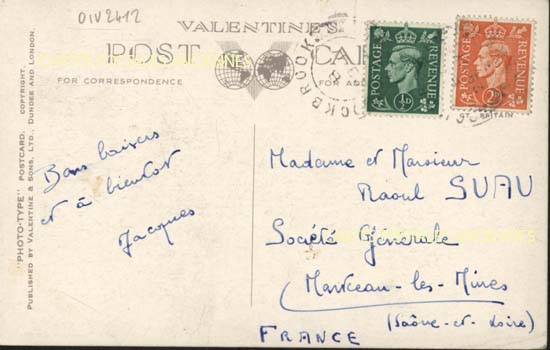 OIV2412
VALENTINE'S
POST CARD
FOR CORRESPONDENCE
FOR
POSTAGE REVENUE
½D
POSTAGE REVENUE
2D
BROOK
"PHOTO-TYPE" POSTCARD. COPYRIGHT.
PUBLISHED BY VALENTINE & SONS, LTD., DUNDEE AND LONDON.
Bons baisers
et à bientot
Jacques
Madame et Monsieur
Raoul SUAU
Société Générale
Montceau-les-Mines
(Saône-et-Loire)
FRANCE